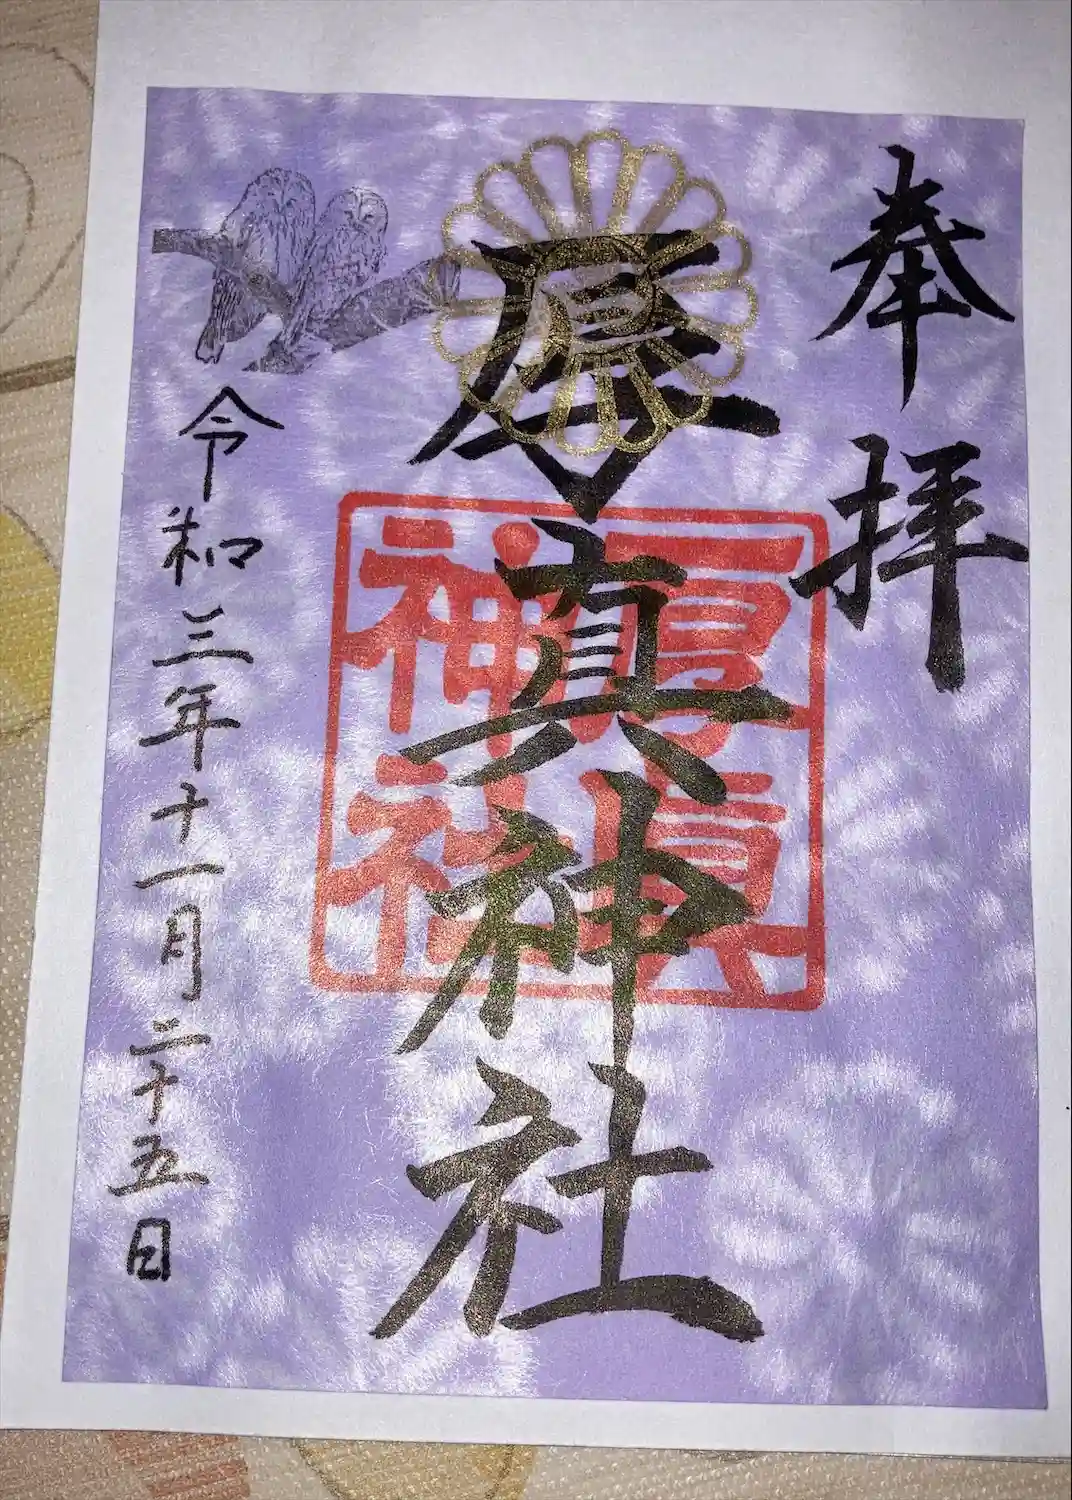 奉拝
厚真神社
厚真
神社
令和三年十一月二十五日